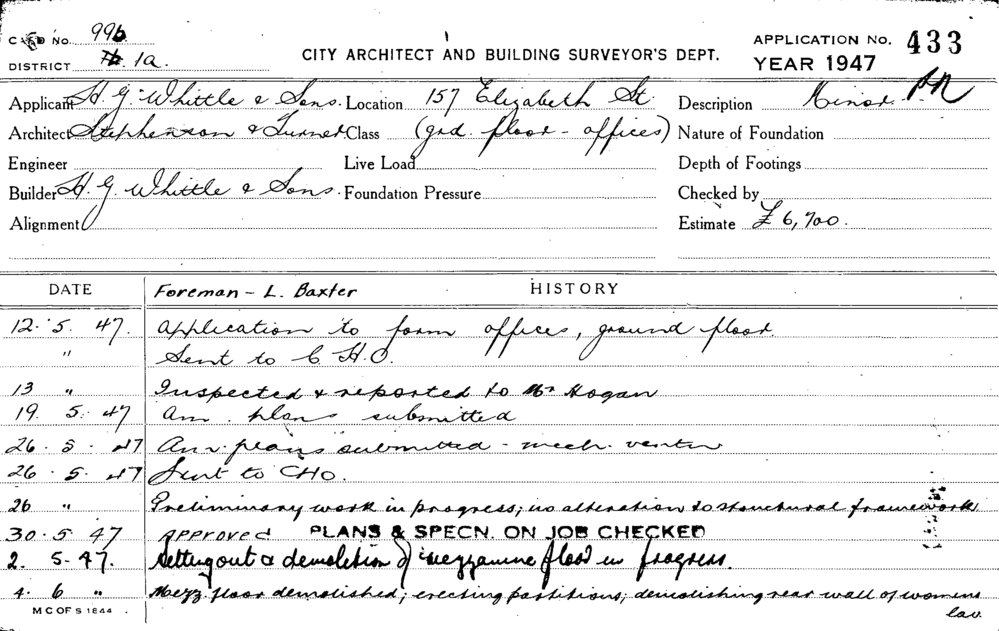 CARD No. 996
DISTRICT 1a.
CITY ARCHITECT AND BUILDING SURVEYOR'S DEPT.
APPLICATION No. 433
YEAR 1947
Applicant H. G. Whittle & Sons. Location 157 Elizabeth St. Description Minor.
Architect Stephenson & Turner Class (grd. floor - offices) Nature of Foundation
Engineer Live Load Depth of Footings
Builder H. G. Whittle & Sons. Foundation Pressure Checked by
Alignment Estimate £6,700.
DATE Foreman - L. Baxter HISTORY
12. 5. 47. Application to form offices, ground floor.
" Sent to C.H.O.
13 " Inspected & reported to Mr Hogan
19. 5. 47 Am. plans submitted
26. 5. 47 Am. plans submitted - mech. ventn
26. 5. 47 Sent to CHO.
26 " Preliminary work in progress; no alteration to structural framework
30. 5. 47 Approved PLANS & SPECN. ON JOB CHECKED
2. 5. 47. Setting out & demolition of mezzanine floor in progress.
4. 6 " Mezz. floor demolished; erecting partitions; demolishing rear wall of womens
M C OF S 1844 lav.